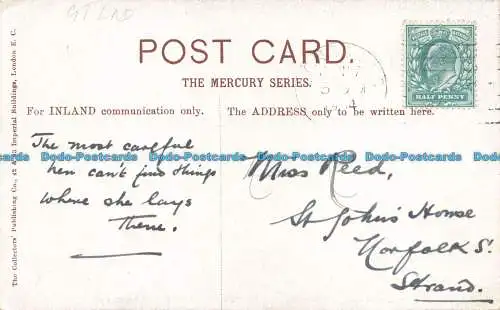 GT LAD
POST CARD.
THE MERCURY SERIES.
For INLAND communication only.
The ADDRESS only to be written here.
HALF PENNY
The most careful
hen can't find things
where she lays
them.
Miss Reed,
St John's House
Norfolk S.
Strand.
The Collectors' Publishing Co., Imperial Buildings, London E. C.
Dodo-Postcards Dodo-Postcards Dodo-Postcards Dodo-Postcards Dodo-Postcards Dodo-Postcards